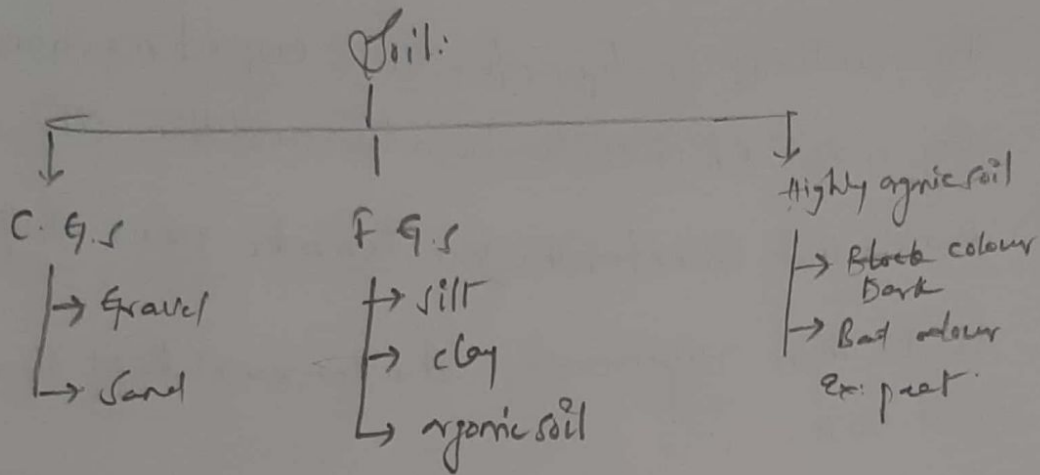 Soil:
C. G.S
→ Gravel
→ Sand
F G.S
→ silt
→ clay
→ organic soil
Highly organic soil
→ Black colour
Dark
→ Bad odour
Ex: peat.